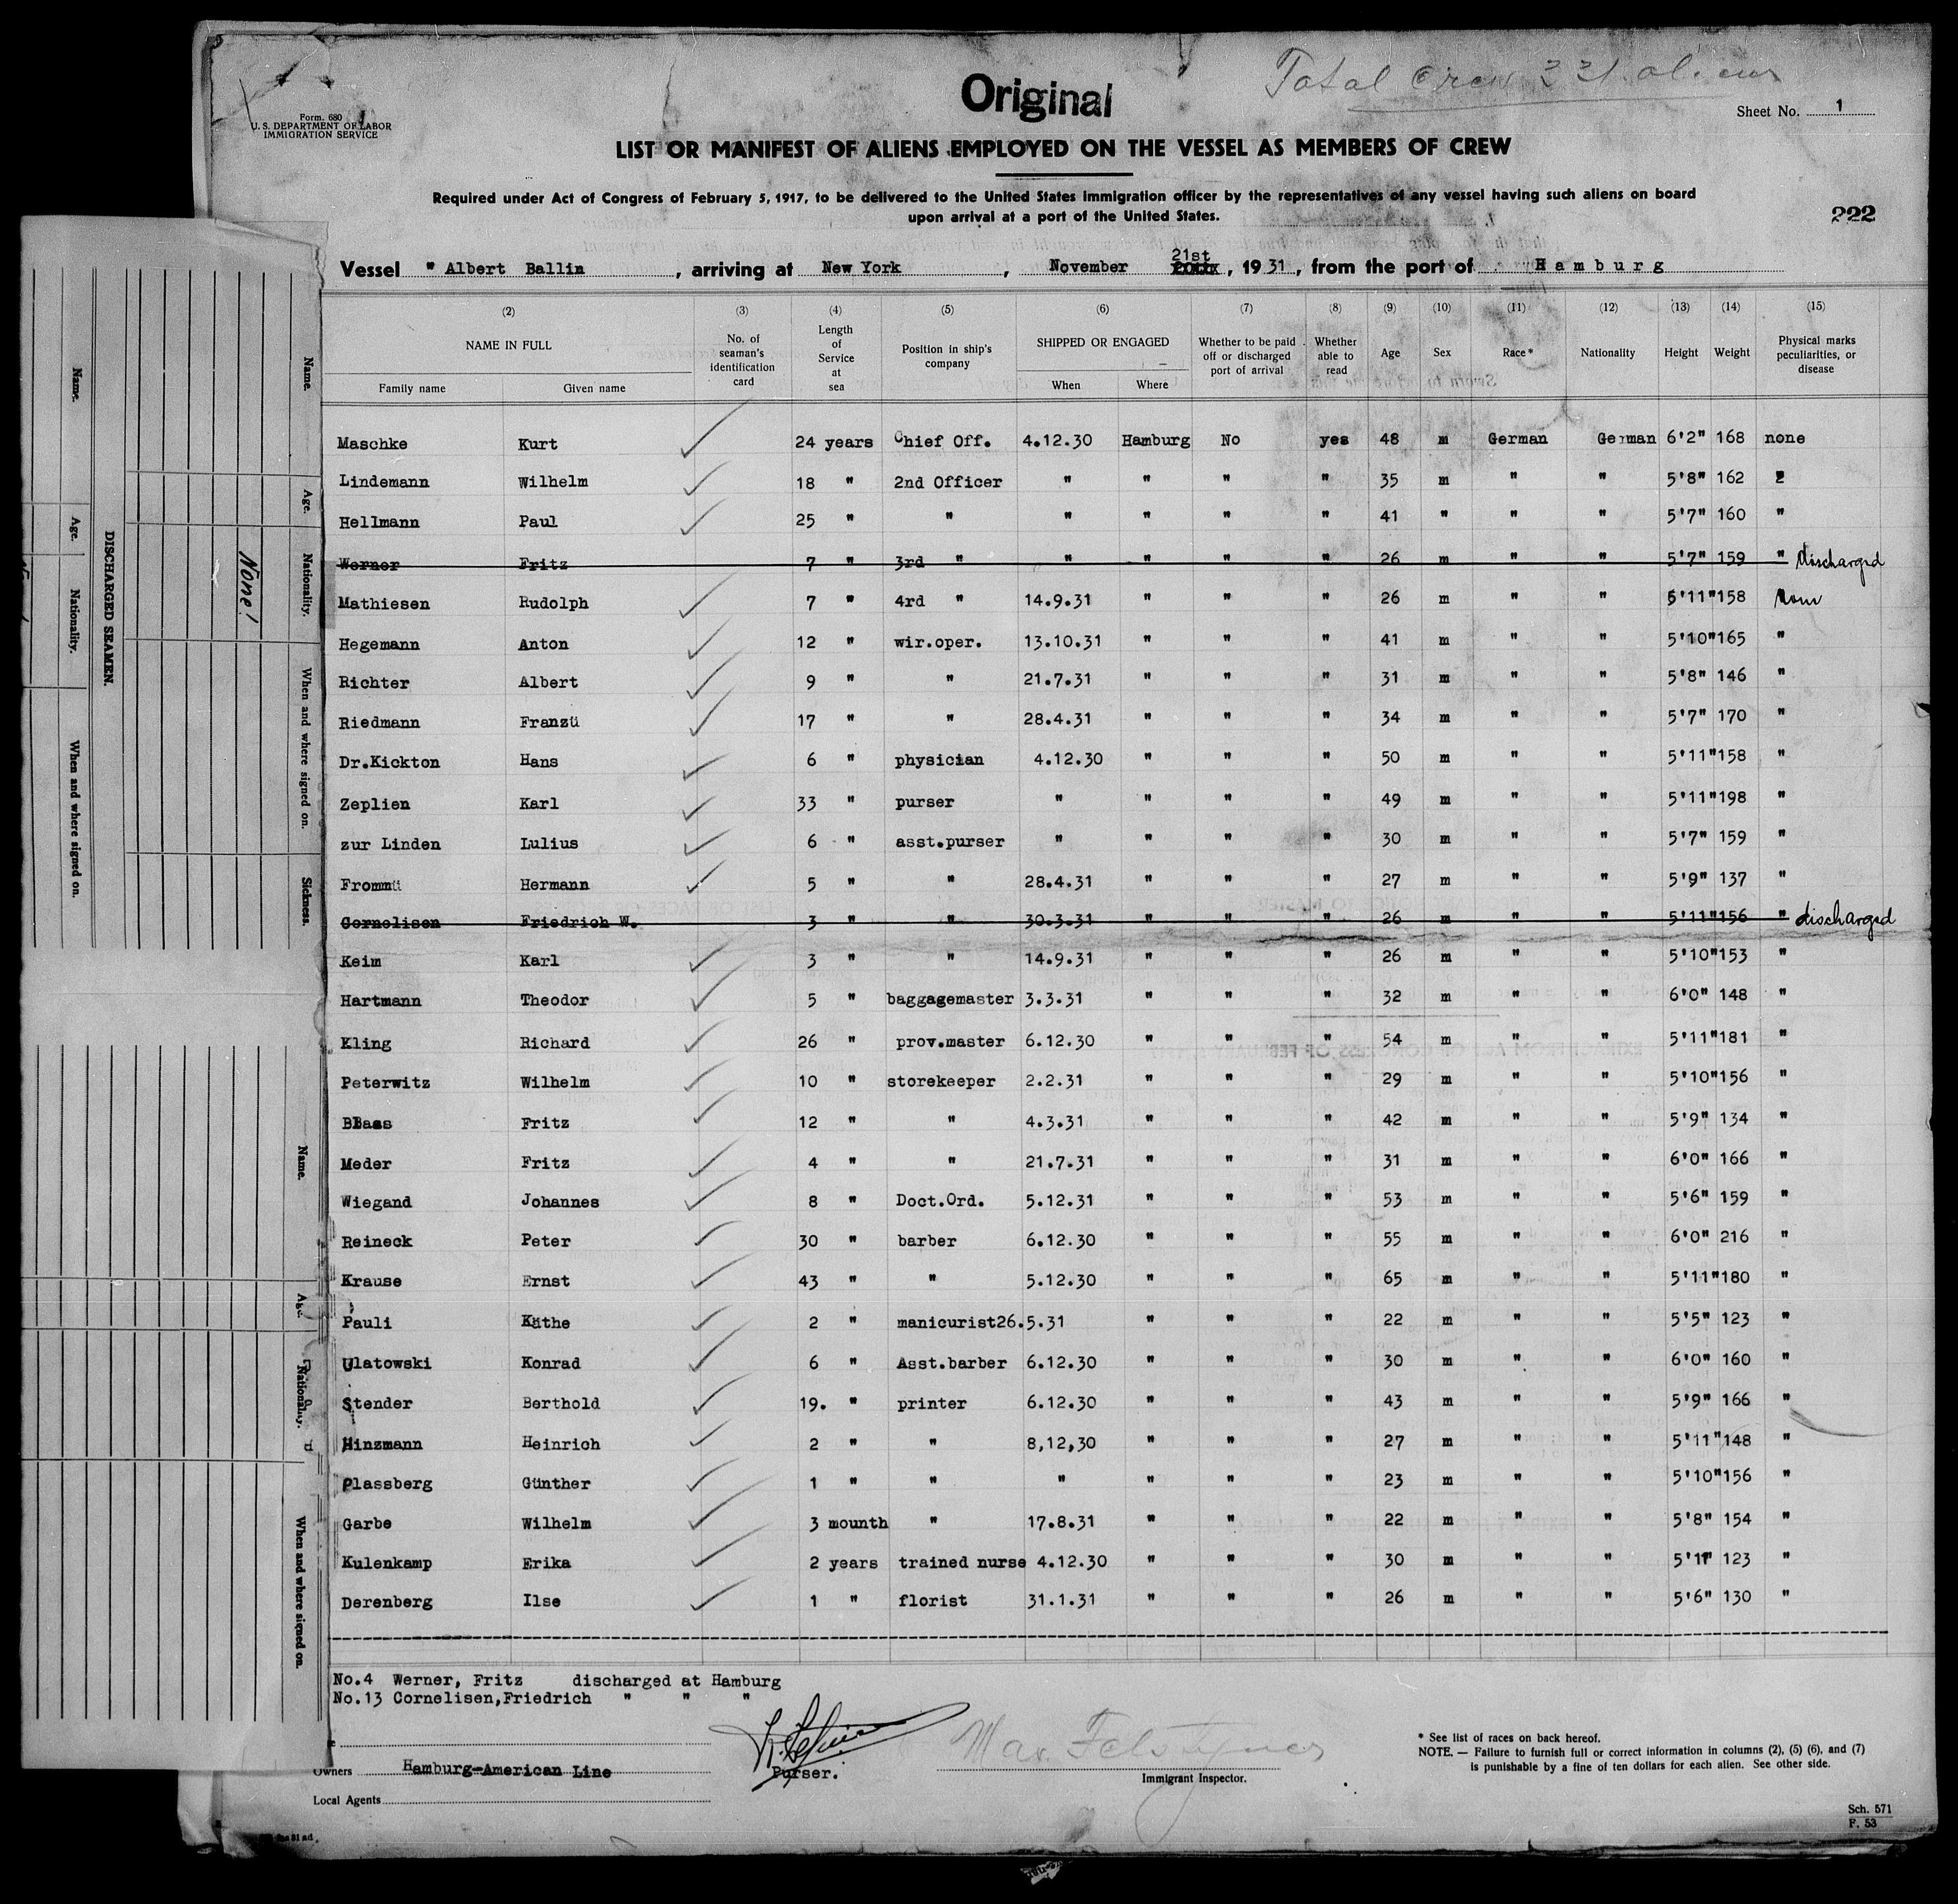 Original
Total Crew 221 aliens
Form. 680
U. S. DEPARTMENT OF LABOR
IMMIGRATION SERVICE
Sheet No. 1
LIST OR MANIFEST OF ALIENS EMPLOYED ON THE VESSEL AS MEMBERS OF CREW
Required under Act of Congress of February 5, 1917, to be delivered to the United States Immigration officer by the representatives of any vessel having such aliens on board
upon arrival at a port of the United States.
222
Vessel " Albert Ballin , arriving at New York , November 21st , 19 31 , from the port of Hamburg
(2) (3) (4) (5) (6) (7) (8) (9) (10) (11) (12) (13) (14) (15)
NAME IN FULL No. of seaman's identification card Length of Service at sea Position in ship's company SHIPPED OR ENGAGED Whether to be paid off or discharged port of arrival Whether able to read Age Sex Race* Nationality Height Weight Physical marks peculiarities, or disease
Family name Given name When Where
Maschke Kurt 24 years Chief Off. 4.12.30 Hamburg No yes 48 m German German 6'2" 168 none
Lindemann Wilhelm 18 " 2nd Officer " " " " 35 m " " 5'8" 162 "
Hellmann Paul 25 " " " " " " 41 " " " 5'7" 160 "
Werner Fritz 7 " 3rd " " " " " 26 m " " 5'7" 159 " discharged
Mathiesen Rudolph 7 " 4rd " 14.9.31 " " " 26 m " " 5'11" 158 none
Hegemann Anton 12 " wir.oper. 13.10.31 " " " 41 m " " 5'10" 165 "
Richter Albert 9 " " 21.7.31 " " " 31 m " " 5'8" 146 "
Riedmann Franzü 17 " " 28.4.31 " " " 34 m " " 5'7" 170 "
Dr.Kickton Hans 6 " physician 4.12.30 " " " 50 m " " 5'11" 158 "
Zeplien Karl 33 " purser " " " " 49 m " " 5'11" 198 "
zur Linden Lulius 6 " asst.purser " " " " 30 m " " 5'7" 159 "
Frommü Hermann 5 " " 28.4.31 " " " 27 m " " 5'9" 137 "
Cornelisen Friedrich W. 3 " " 30.3.31 " " " 26 m " " 5'11" 156 " discharged
Keim Karl 3 " " 14.9.31 " " " 26 m " " 5'10" 153 "
Hartmann Theodor 5 " baggagemaster 3.3.31 " " " 32 m " " 6'0" 148 "
Kling Richard 26 " prov.master 6.12.30 " " " 54 m " " 5'11" 181 "
Peterwitz Wilhelm 10 " storekeeper 2.2.31 " " " 29 m " " 5'10" 156 "
Blaas Fritz 12 " " 4.3.31 " " " 42 m " " 5'9" 134 "
Meder Fritz 4 " " 21.7.31 " " " 31 m " " 6'0" 166 "
Wiegand Johannes 8 " Doct.Ord. 5.12.31 " " " 53 m " " 5'6" 159 "
Reineck Peter 30 " barber 6.12.30 " " " 55 m " " 6'0" 216 "
Krause Ernst 43 " " 5.12.30 " " " 65 m " " 5'11" 180 "
Pauli Käthe 2 " manicurist 26.5.31 " " " 22 m " " 5'5" 123 "
Ulatowski Konrad 6 " Asst.barber 6.12.30 " " " 30 m " " 6'0" 160 "
Stender Berthold 19. " printer 6.12.30 " " " 43 m " " 5'9" 166 "
Hinzmann Heinrich 2 " " 8,12,30 " " " 27 m " " 5'11" 148 "
Plassberg Günther 1 " " " " " " 23 m " " 5'10" 156 "
Garbe Wilhelm 3 mounth " 17.8.31 " " " 22 m " " 5'8" 154 "
Kulenkamp Erika 2 years trained nurse 4.12.30 " " " 30 m " " 123 "
Derenberg Ilse 1 " florist 31.1.31 " " " 26 m " " 5'6" 130 "
No.4 Werner, Fritz discharged at Hamburg
No.13 Cornelisen,Friedrich " " "
Owners Hamburg-American Line
Purser.
Immigrant Inspector.
Local Agents
* See list of races on back hereof.
NOTE. — Failure to furnish full or correct information in columns (2), (5) (6), and (7)
is punishable by a fine of ten dollars for each alien. See other side.
Sch. 571
F. 53
DISCHARGED SEAMEN.
Name. Age. Nationality. When and where signed on.
Name. Age. Nationality. When and where signed on. Sickness.
None!
Name. Age. Nationality. When and where signed on.